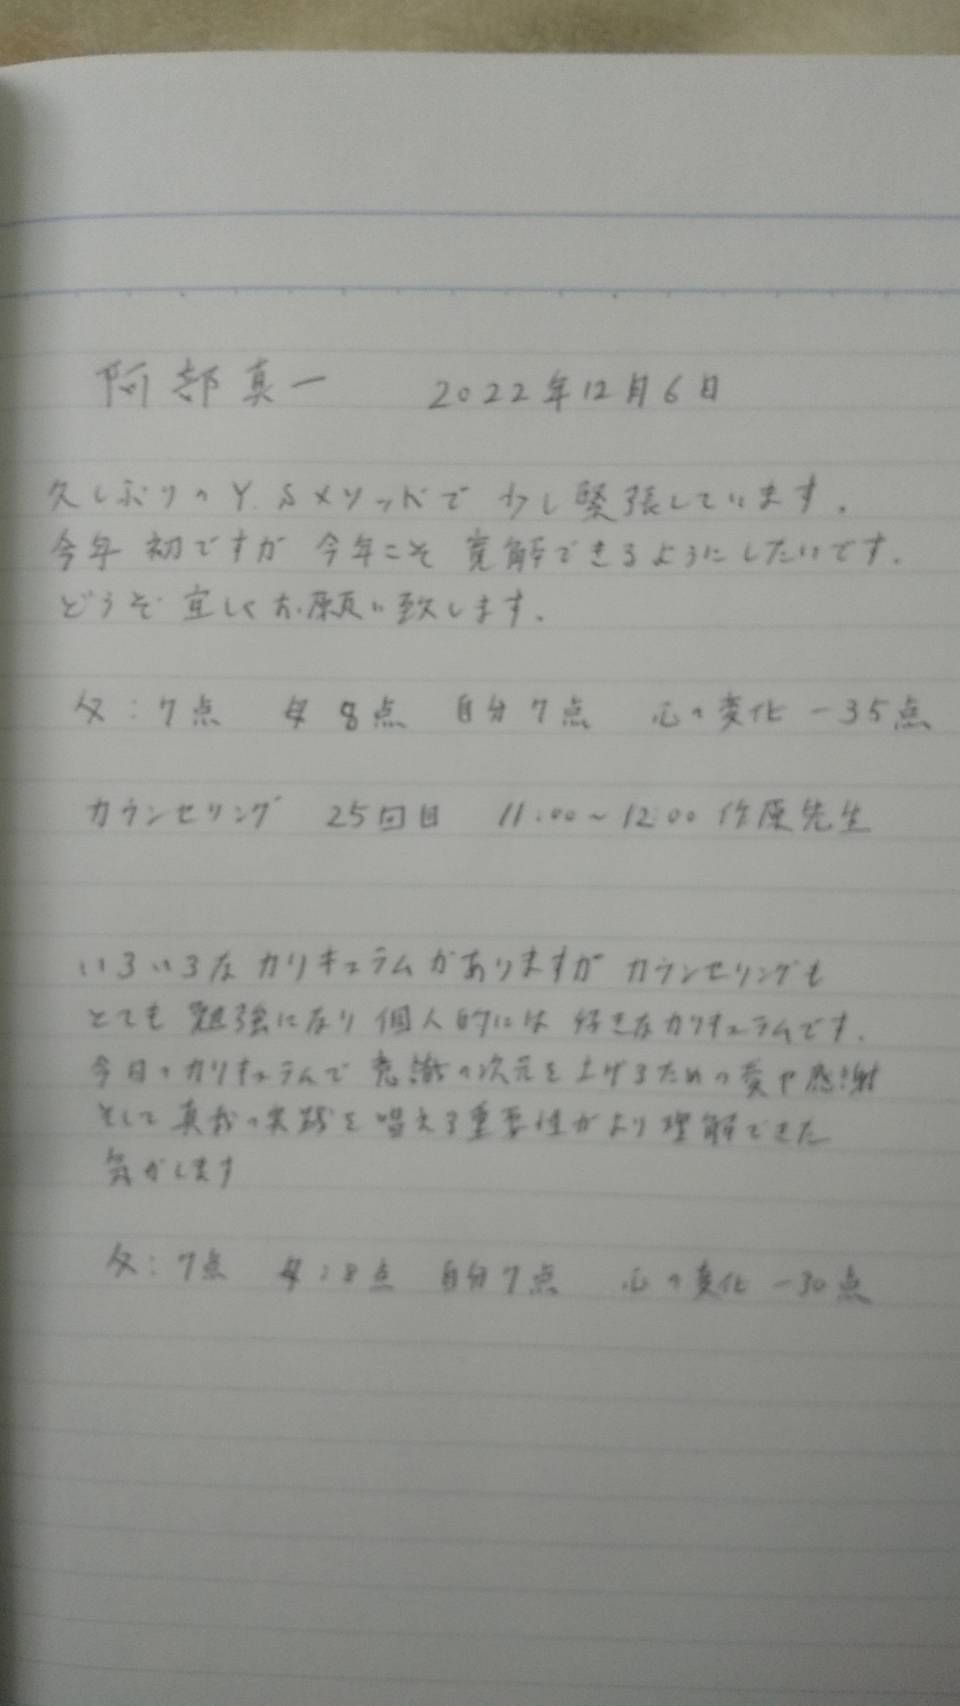 阿部真一 2022年12月6日
久しぶりのY.Sメソッドで少し緊張しています。
今年初ですが今年こそ寛解できるようにしたいです。
どうぞ宜しくお願い致します。
父:7点 母8点 自分7点 心の変化-35点
カウンセリング 25回目 11:00~12:00 作原先生
いろいろなカリキュラムがありますがカウンセリングも
とても勉強になり個人的には好きなカリキュラムです。
今日のカリキュラムで意識の次元を上げるための愛や感謝
そして真我の実践を唱える重要性がより理解できた
気がします
父:7点 母:8点 自分7点 心の変化-30点